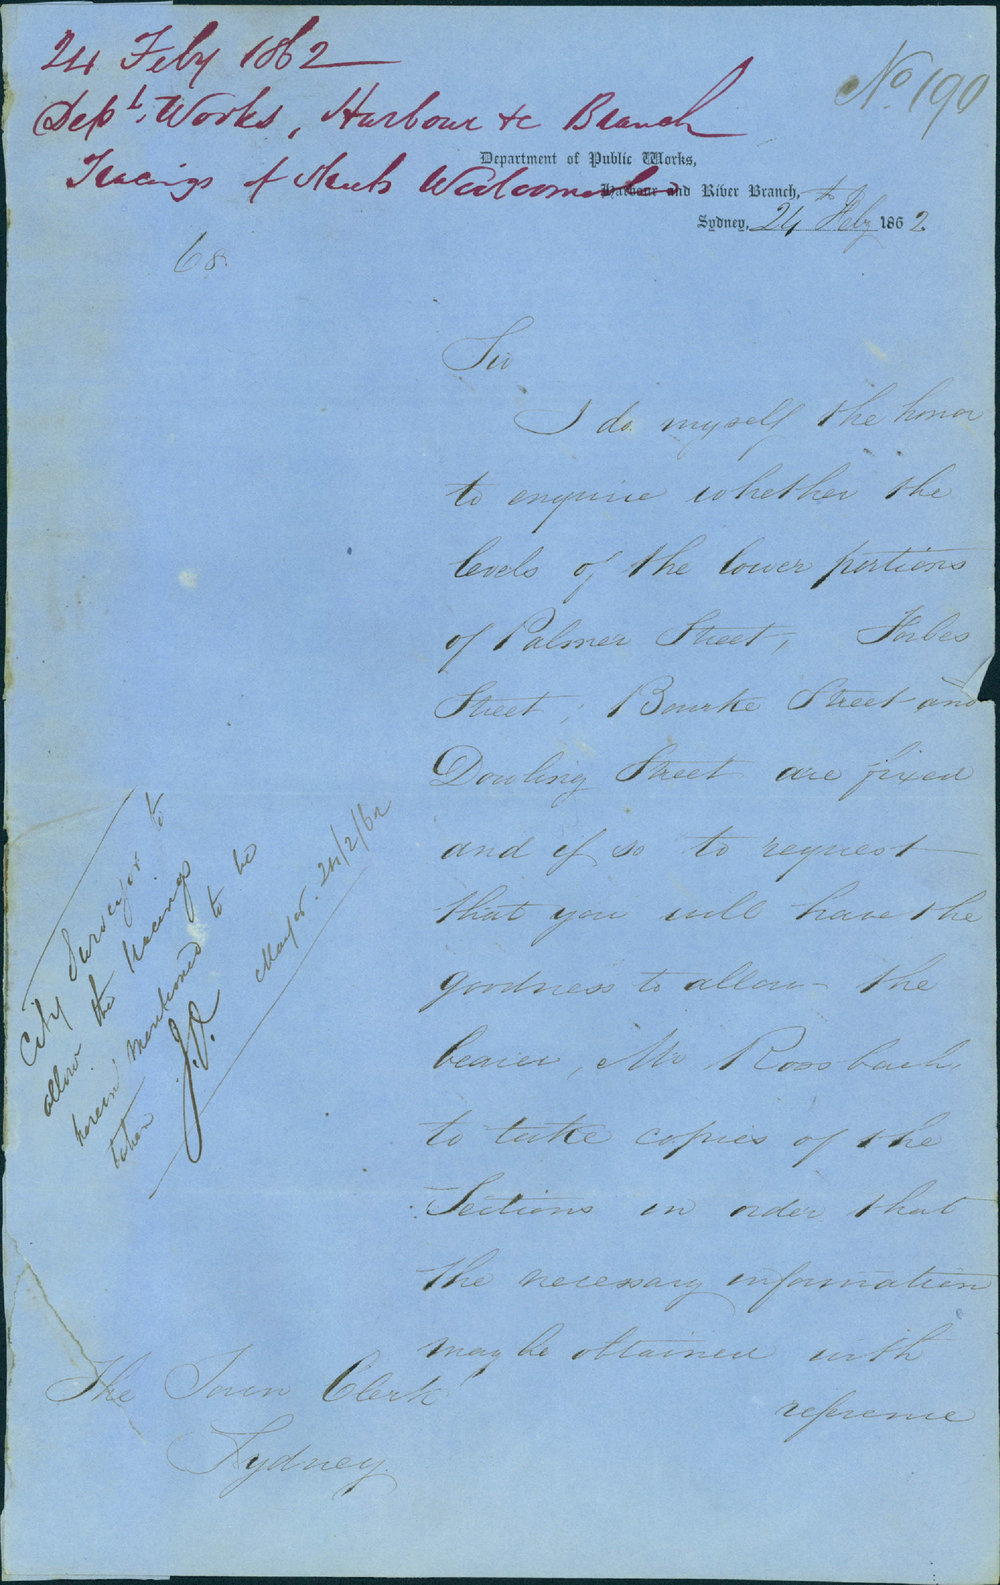 24 Feby 1862
No 190
Dept. Works, Harbour &c Branch
Tracings of Streets
Department of Public Works,
Harbour and River Branch,
Sydney, 24th Feby 1862.
68
Sir
I do myself the honor
to enquire whether the
levels of the lower portions
of Palmer Street, Forbes
Street, Bourke Street and
Dowling Street are fixed
and if so to request
that you will have the
goodness to allow the
bearer, Mr Rossbach,
to take copies of the
Sections in order that
the necessary information
may be obtained with
reference
City Surveyor to
allow the tracings
herein mentioned to be
taken
Mayor. 24/2/62
The Town Clerk
Sydney